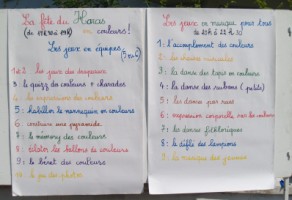 La fête du Haras
en couleurs!
Les jeux en équipes
1 et 2. les jeux de drapeaux
3. le quizz de couleurs + charades
4. les expressions de couleurs
5. habiller le mannequin en couleurs
6. construire une pyramide
7. le memory des couleurs
8. pilotes les ballons de couleurs
9. le béret des couleurs
10. le jeu des photos
Les jeux en musique pour tous
1. l'accomplement des couleurs
2. les chaises musicales
3. la danse des tapis en couleurs
4. la danse des rubans (petits)
5. les danses par rues
6. expression corporelle avec les rubans
7. les danses folkloriques
8. le défilé des lampions
9. la musique des